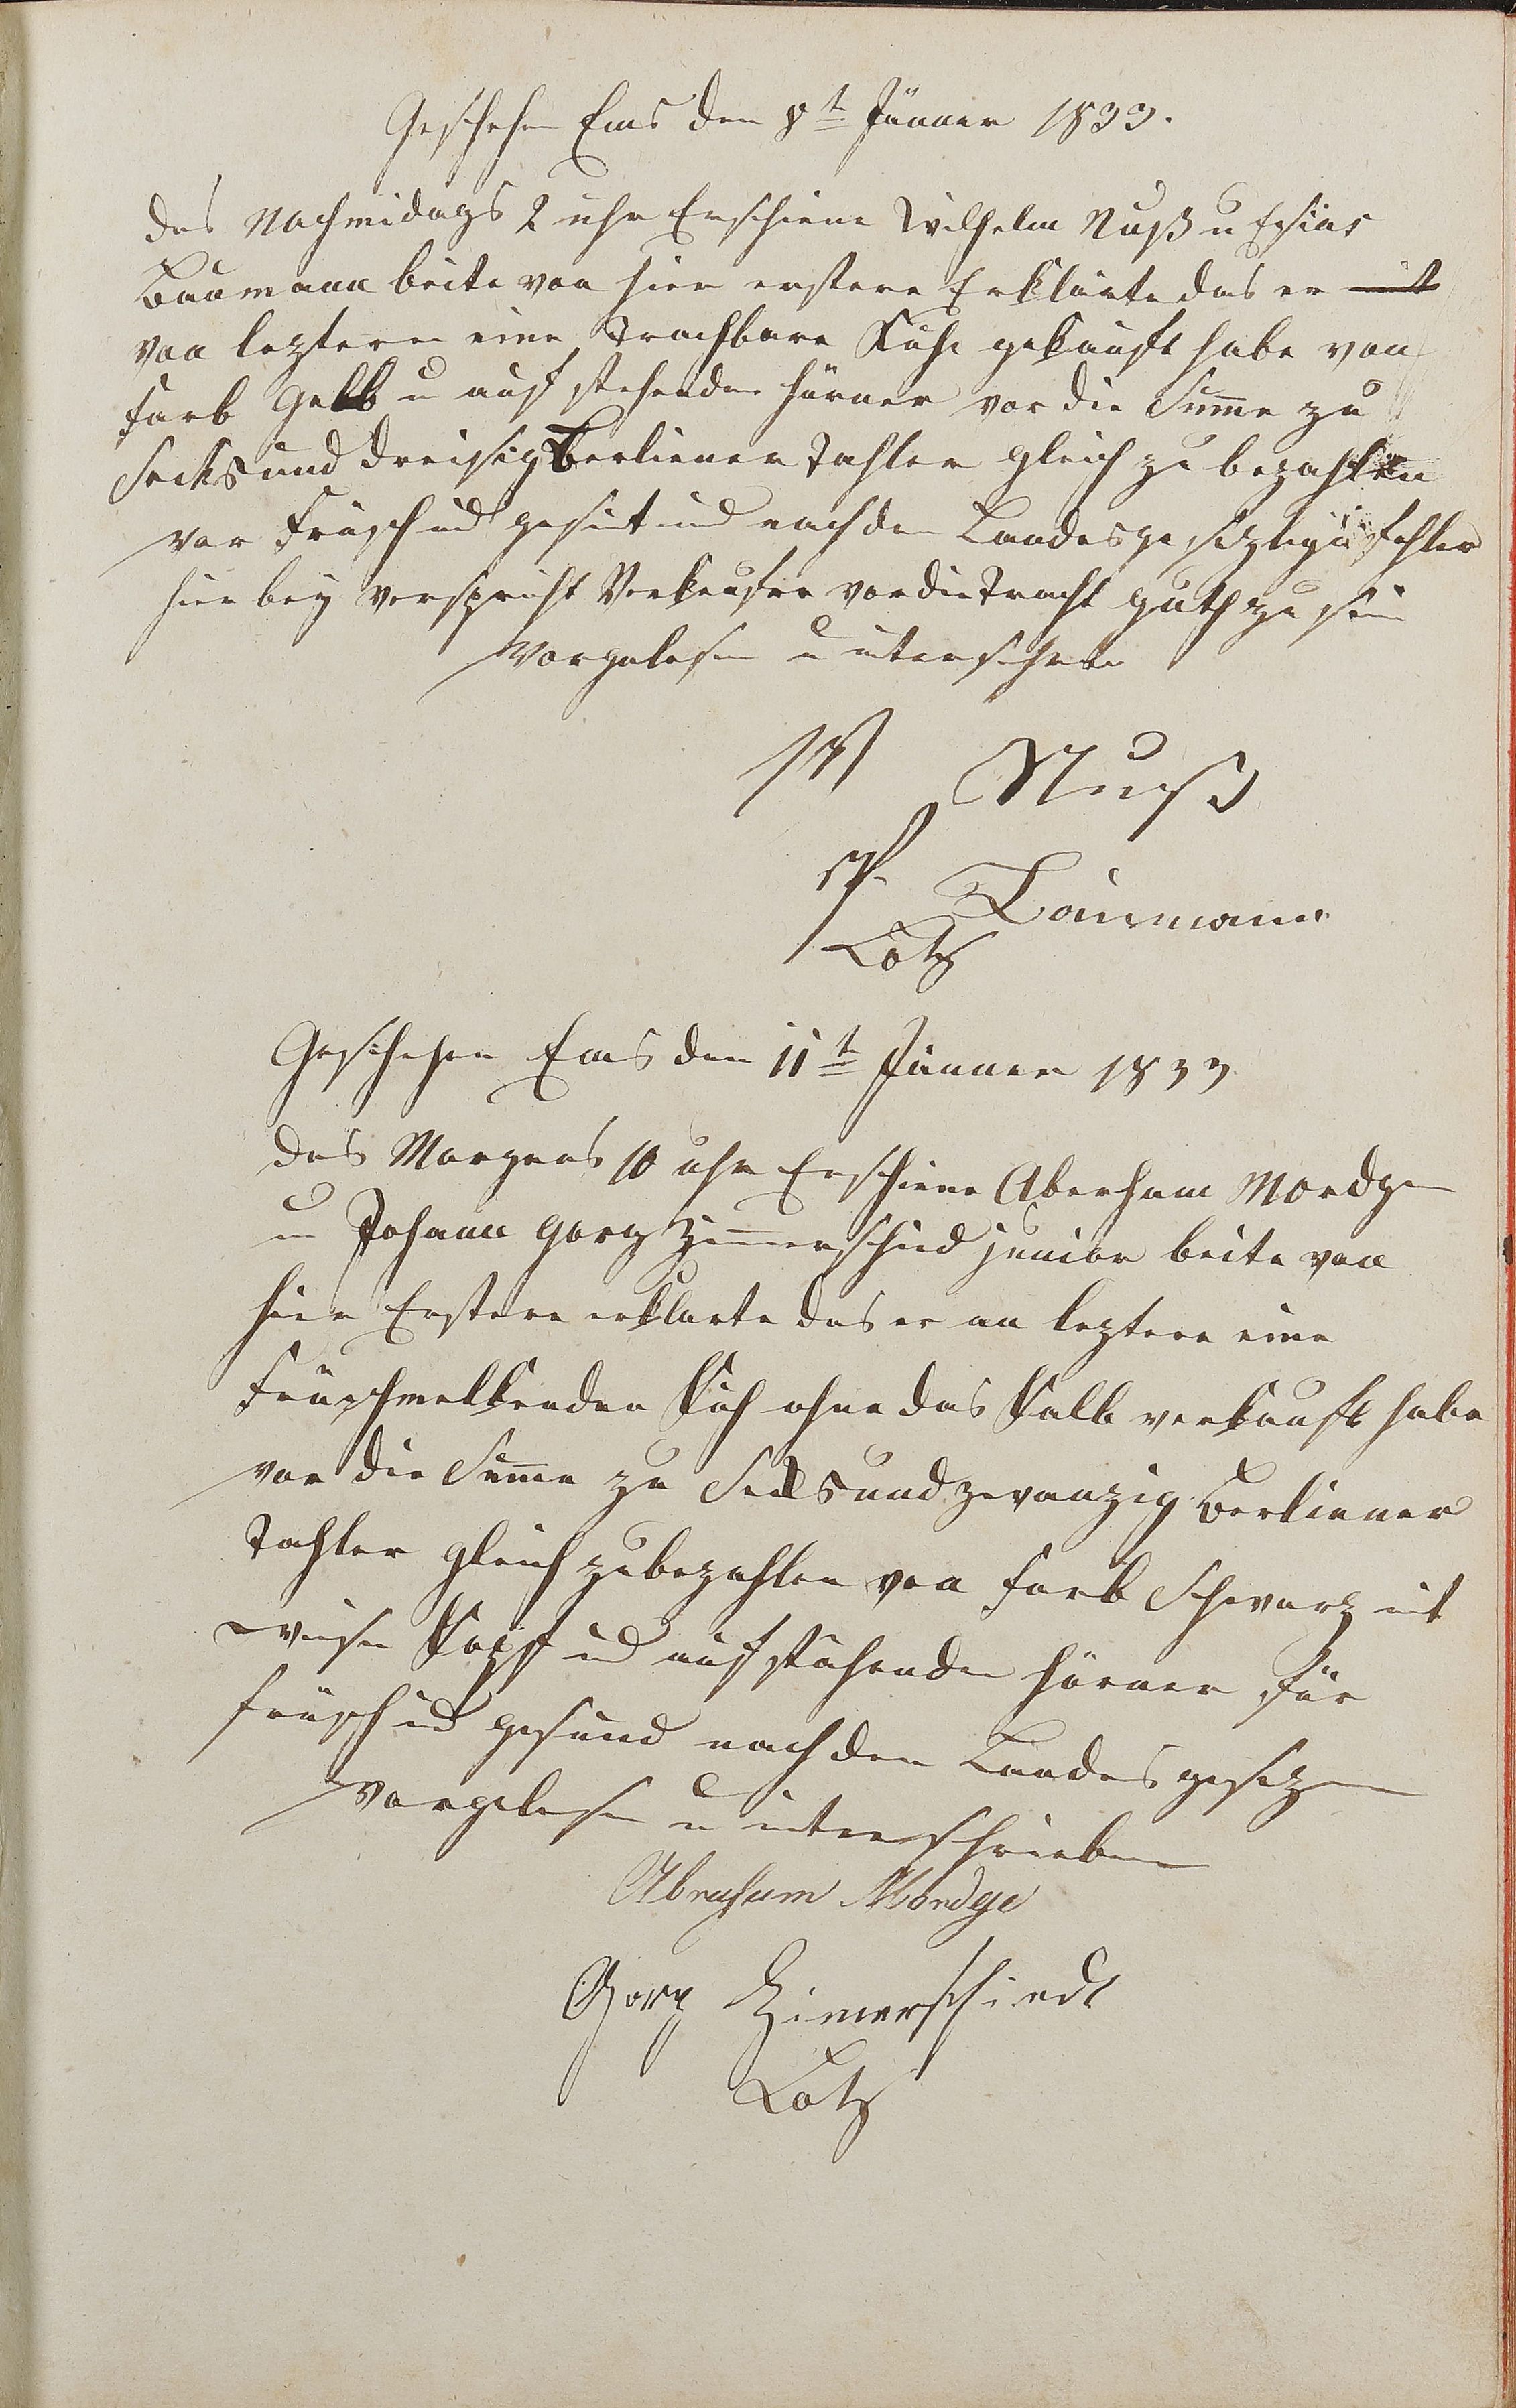 Geschehen Ems den 8t Jänner 1833.
des Nachmidags 2 uhr Erschiene Wilhelm Nuß u
Baumann beite von hier erstere Erklärte das er mit
von leztern eine Trachbare Kuhe gekauft habe von
farb Gelb u auf stehenden hörner vor die Sume zu
Secks und dreisig Berliener Tahler gleich zu bezahlen
vor Früsch und gesunt und nach den Landes gesezligen fehler
hier bey verspricht Verkeufer vor die Tracht guth zu sein
Vorgelesen u unterschrben
W Nuß
Baumann
Lotz
Geschehen Ems den 11t Jänner 1833
des Morgens 10 uhr Erschiene Aberham Mordge
u Johann Gorg Zimerschied junior beite von
hier Erstere erklarte das er an leztere eine
Früschmelkenden Kuh ohne das Kalb verkauft habe
vor die Sume zu Secksundzwanzig Berliener
Tahler gleich zu bezahlen von farb Schwarz mit
weisen Kopf und auf stehenden hörner für
früsch und gesund nach den Landes gesezen
Vorgelesen u unterschrieben
Abraham Mordge
Gorg Zimerschiedt
Lotz